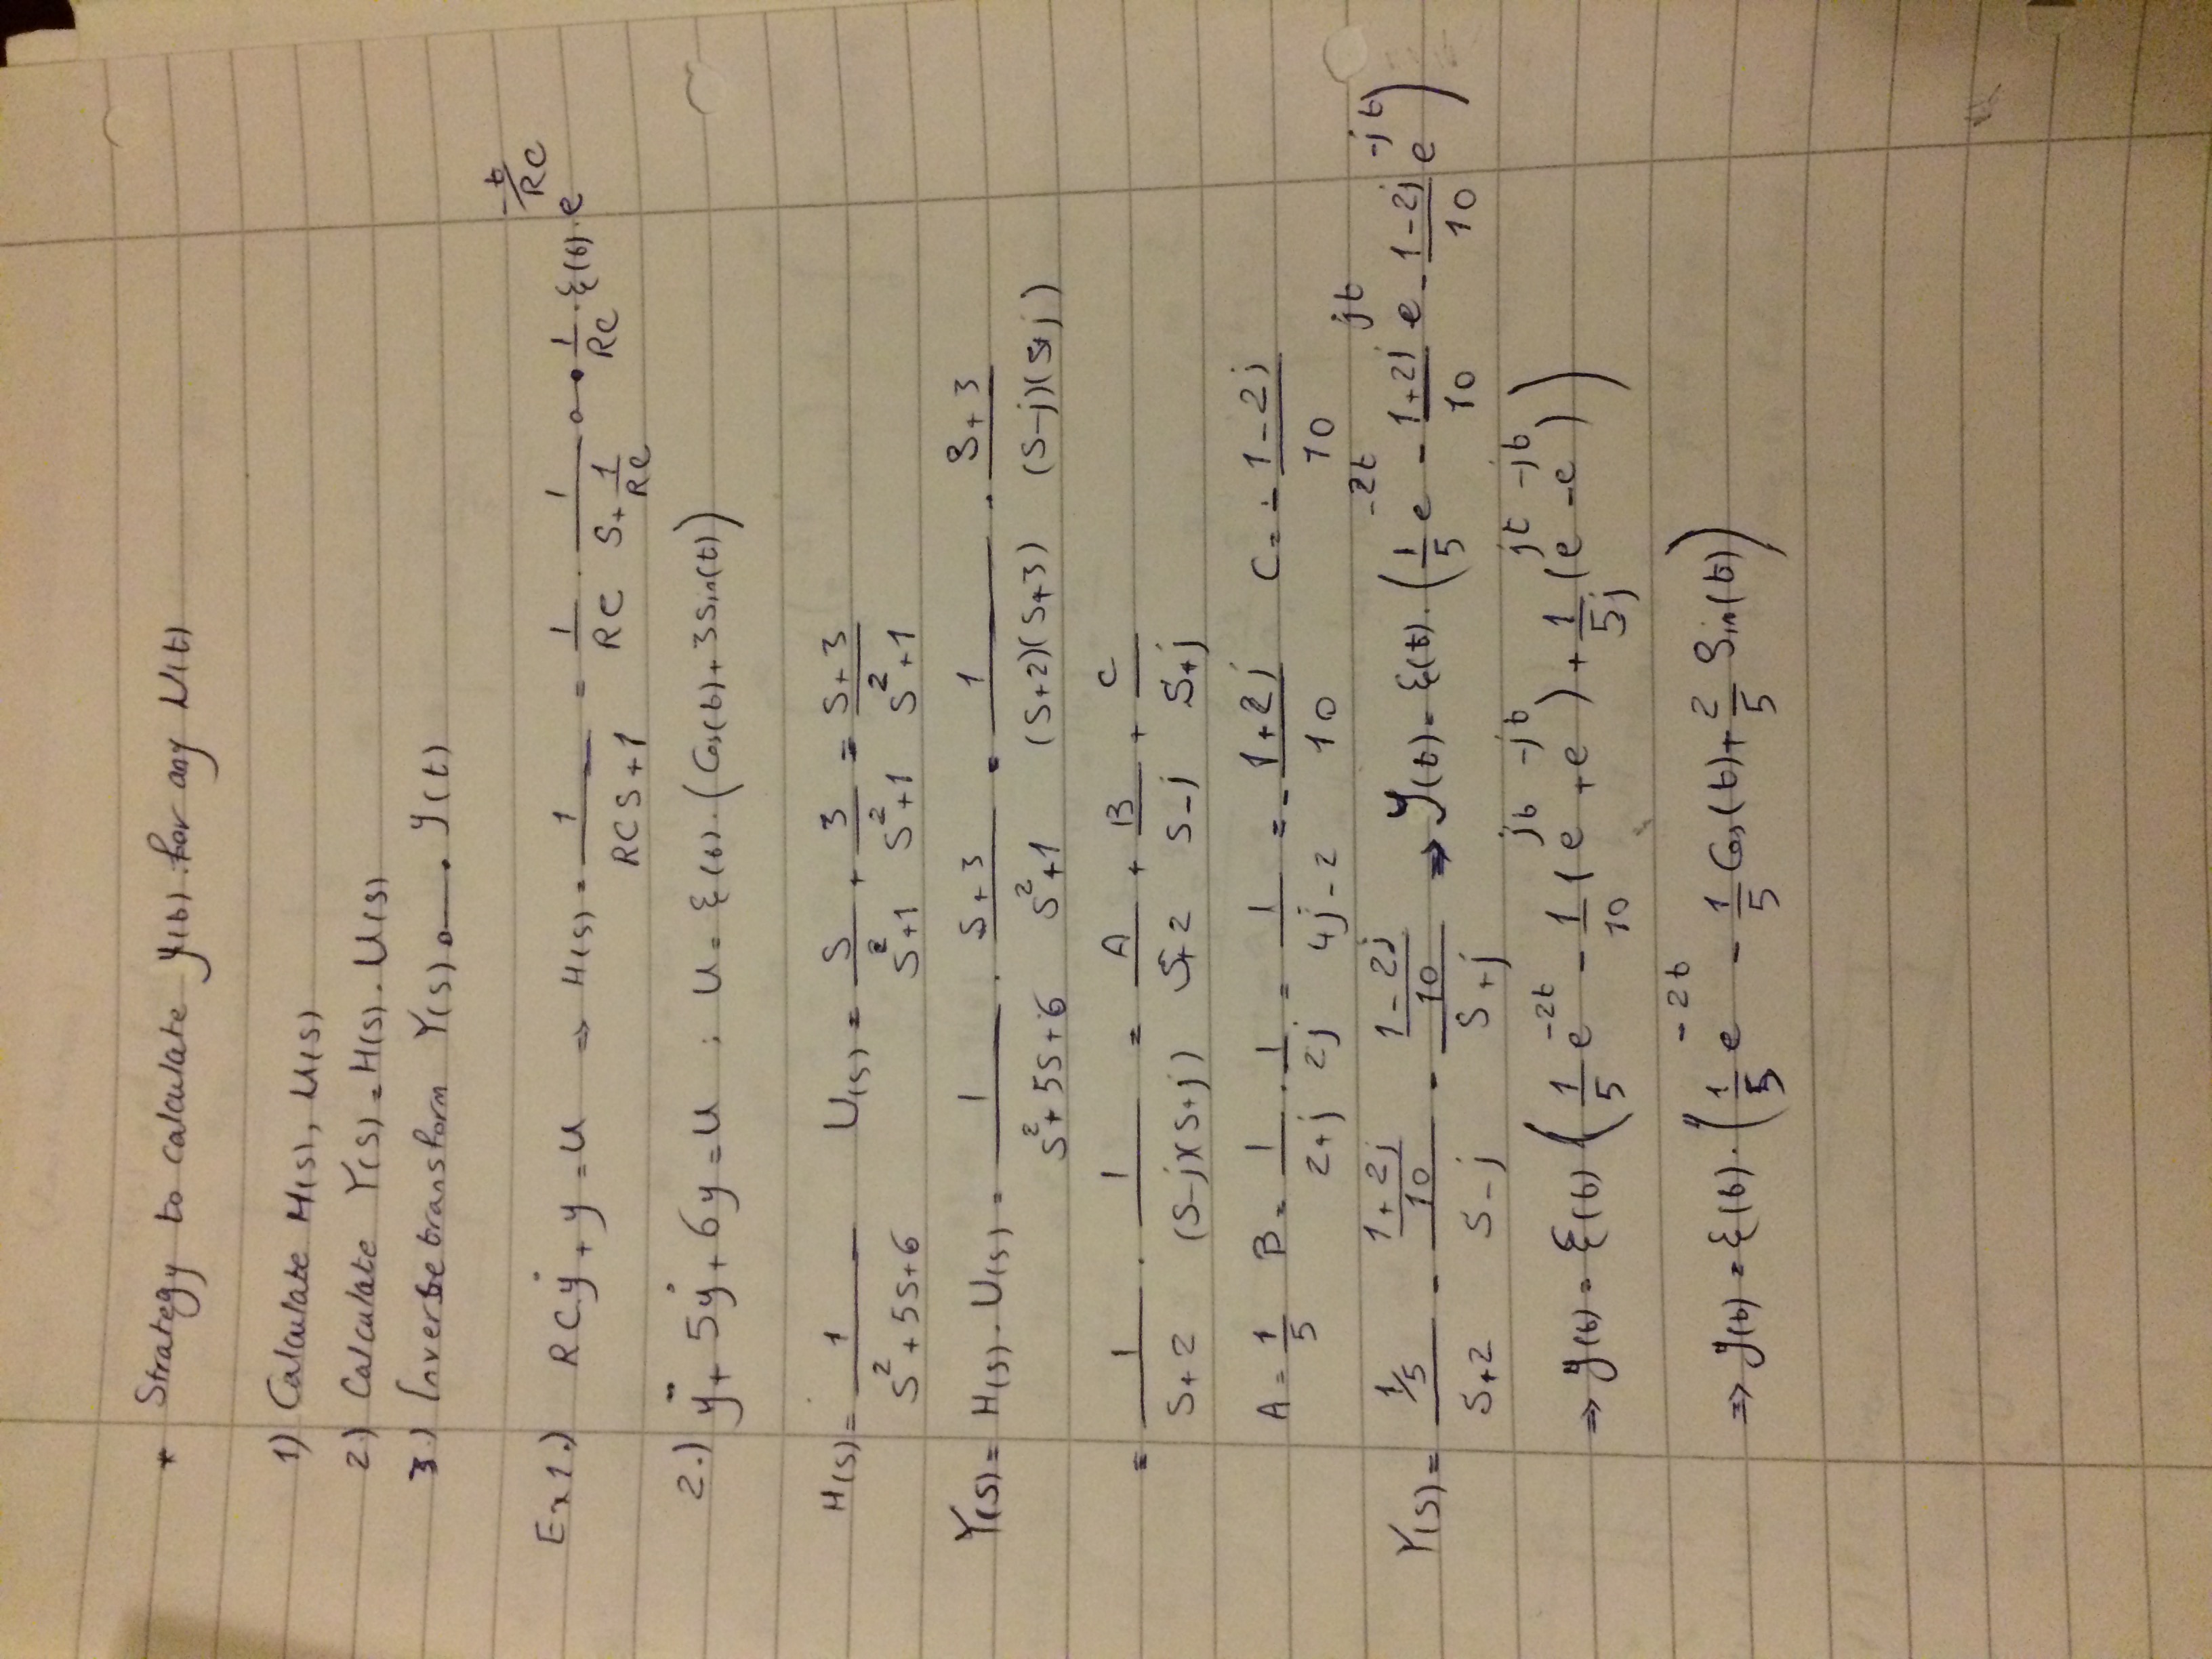 * Strategy to calculate y(t) for any U(t)
1) Calculate H(s), U(s)
2) Calculate Y(s) = H(s) . U(s)
3.) Inverse transform Y(s) o—• y(t)
Ex 1.) RCẏ + y = u ⇒ H(s) = 1/(RCS+1) = 1/RC . 1/(S + 1/RC) o—• 1/RC . ε(t) . e^(-t/RC)
2.) ÿ + 5ẏ + 6y = u ; u = ε(t) . (Cos(t) + 3Sin(t))
H(s) = 1/(S²+5S+6) U(s) = S/(S²+1) + 3/(S²+1) = (S+3)/(S²+1)
Y(s) = H(s) . U(s) = 1/(S²+5S+6) . (S+3)/(S²+1) = 1/((S+2)(S+3)) . (S+3)/((S-j)(S+j))
= 1/(S+2) . 1/((S-j)(S+j)) = A/(S+2) + B/(S-j) + C/(S+j)
A = 1/5 B = 1/(2+j) . 1/2j = 1/(4j-2) = -(1+2j)/10 C = -(1-2j)/10
Y(s) = (1/5)/(S+2) - ((1+2j)/10)/(S-j) - ((1-2j)/10)/(S+j) ⇒ y(t) = ε(t) . (1/5 e^(-2t) - (1+2j)/10 e^(jt) - (1-2j)/10 e^(-jt))
⇒ y(t) = ε(t) (1/5 e^(-2t) - 1/10 (e^(jt) + e^(-jt)) + 1/5j (e^(jt) - e^(-jt)))
⇒ y(t) = ε(t) . (1/5 e^(-2t) - 1/5 Cos(t) + 2/5 Sin(t))